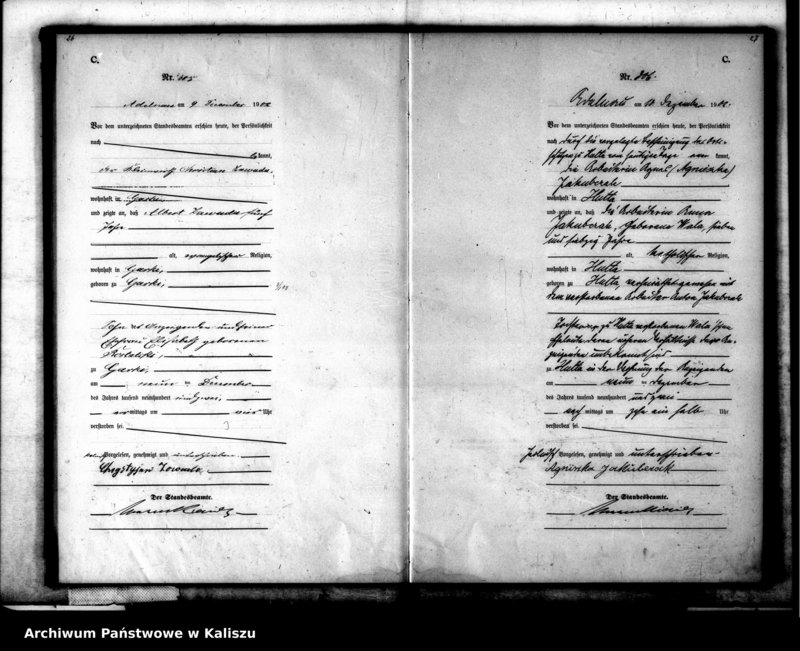 26
C.
Nr. 105
Adelnau am 9 Dezember 1902
Vor dem unterzeichneten Standesbeamten erschien heute, der Persönlichkeit
nach kannt,
der
wohnhaft in
und zeigte an, daß Albert Zawada, fünf
Jahr
alt, evangelischer Religion,
wohnhaft in Garki,
geboren zu Garki,
Sohn des Anzeigenden und seiner
Ehefrau Elisabeth geborenen
zu Garki,
am neun ten Dezember
des Jahres tausend neunhundert und zwei,
vor mittags um vier Uhr
verstorben sei.
Vorgelesen, genehmigt und unterschrieben.
Der Standesbeamte.
27
C.
Nr. 106.
Adelnau am 10. Dezember 1902.
Vor dem unterzeichneten Standesbeamten erschien heute, der Persönlichkeit
nach durch die vorgelegte Bescheinigung des Orts-
Hutta vom heutigen Tage aner kannt,
die Arbeiterin Agnes (Agnieszka)
Jakubczak
wohnhaft in Hutta
und zeigte an, daß die Arbeiterin Anna
Jakubczak, geborene Wala, sieben
und siebzig Jahre
alt, katholischer Religion,
wohnhaft in Hutta
geboren zu Hutta, verheirathet gewesen mit
dem verstorbenen Arbeiter Jakubczak
Tochter der zu Hutta verstorbenen Wala'schen
Eheleute deren nähere Verhältnisse der An-
zeigenden unbekannt sind
zu Hutta in der Wohnung der Anzeigenden
am neun ten Dezember
des Jahres tausend neunhundert und zwei
nach mittags um zehn ein halb Uhr
verstorben sei.
Vorgelesen, genehmigt und unterschrieben
Agnieszka Jakubczak
Der Standesbeamte.
Archiwum Państwowe w Kaliszu